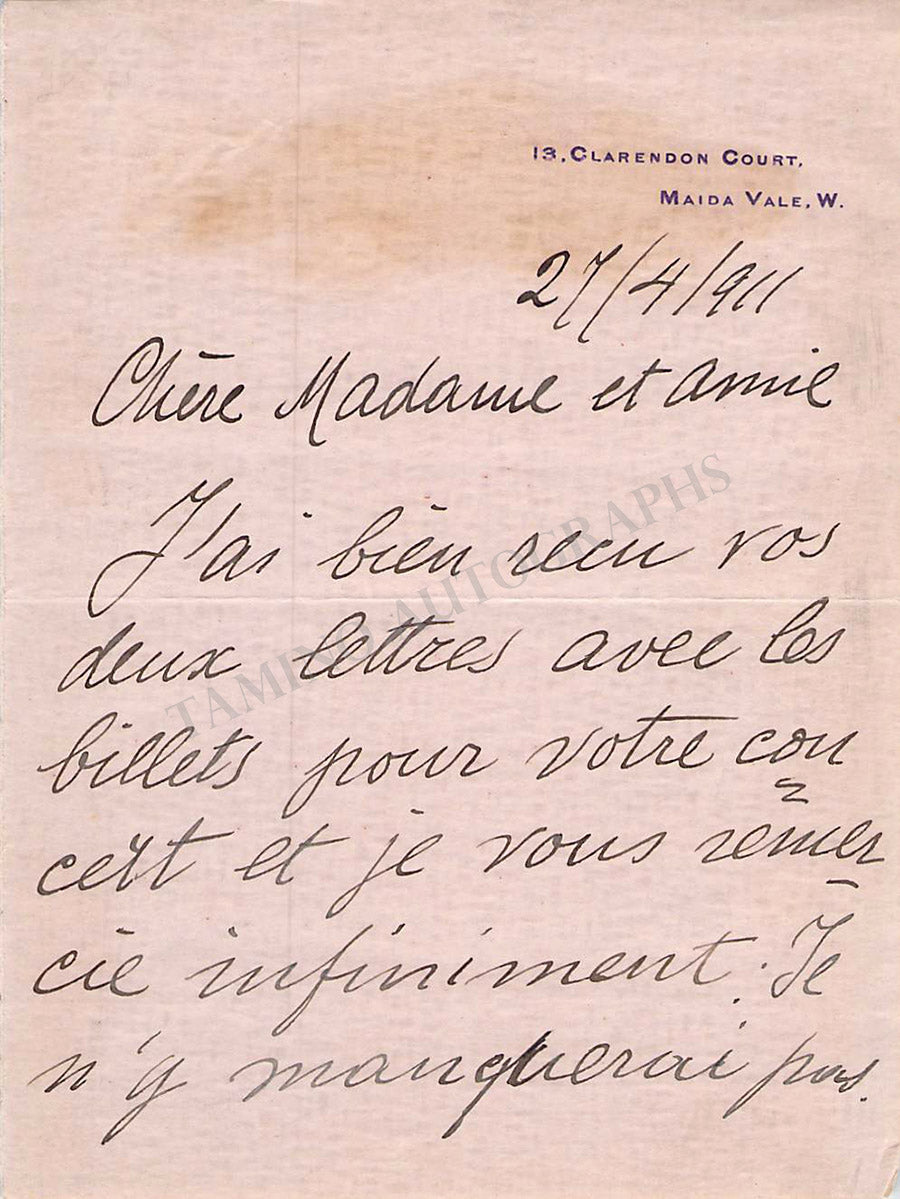 13, CLARENDON COURT,
MAIDA VALE, W.
27/4/911
Chère Madame et amie
J'ai bien recu vos
deux lettres avec les
billets pour votre con
cert et je vous remer
cie infiniment. Je
n'y manquerai pas.
TAMINO AUTOGRAPHS